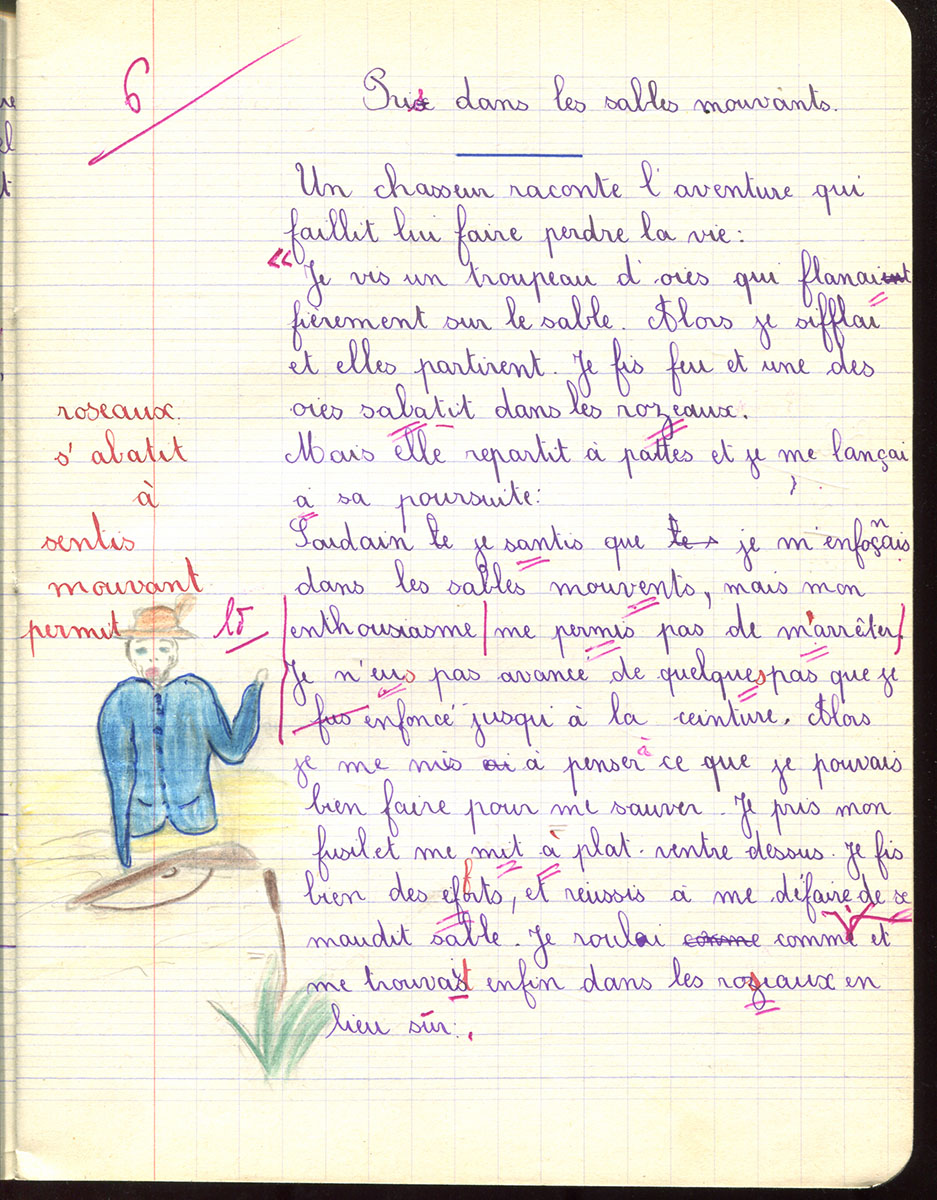 6
Pris dans les sables mouvants.
Un chasseur raconte l'aventure qui
faillit lui faire perdre la vie :
« Je vis un troupeau d'oies qui flanaient
fièrement sur le sable. Alors je sifflai
et elles partirent. Je fis feu et une des
oies sabatit dans les rozeaux.
roseaux.
s'abatit
Mais elle repartit à pattes et je me lançai
à
a sa poursuite :
sentis
Soudain je santis que je m'enfonçais
mouvant
dans les sables mouvents, mais mon
permit
ld
enthousiasme me permis pas de m'arrêter.
Je n'eus pas avancé de quelques pas que je
fus enfoncé jusqu'à la ceinture. Alors
je me mis à penser à ce que je pouvais
bien faire pour me sauver. Je pris mon
fusil et me mit à plat-ventre dessus. Je fis
bien des efforts, et réussis à me défaire de se
maudit sable. Je roulai comme comme et
me trouvait enfin dans les rozeaux en
lieu sûr.